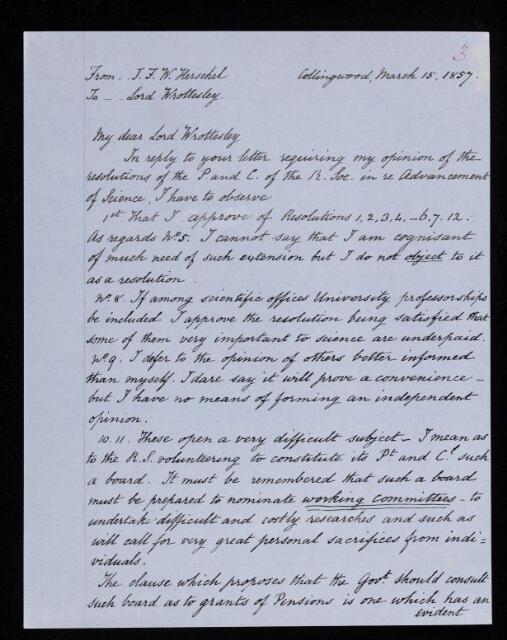 5
From J. F. W. Herschel Collingwood, March 15. 1857.
To -- Lord Wrottesley.
My dear Lord Wrottesley
In reply to your letter requiring my opinion of the
resolutions of the P. and C. of the R. Soc. in re Advancement
of Science, I have to observe
1st That I approve of Resolutions 1, 2, 3, 4, - 6. 7. 12.
As regards No. 5. I cannot say that I am cognisant
of much need of such extension but I do not object to it
as a resolution.
No. 8. If among scientific offices University professorships
be included I approve the resolution being satisfied that
some of them very important to science are underpaid.
No. 9. I defer to the opinion of others better informed
than myself. I dare say it will prove a convenience -
but I have no means of forming an independent
opinion.
10. 11. These open a very difficult subject - I mean as
to the R. S. volunteering to constitute its Pt. and Cl. such
a board. It must be remembered that such a board
must be prepared to nominate working committees - to
undertake difficult and costly researches and such as
will call for very great personal sacrifices from indi=
viduals.
The clause which proposes that the Govt. should consult
such board as to grants of Pensions is one which has an
evident